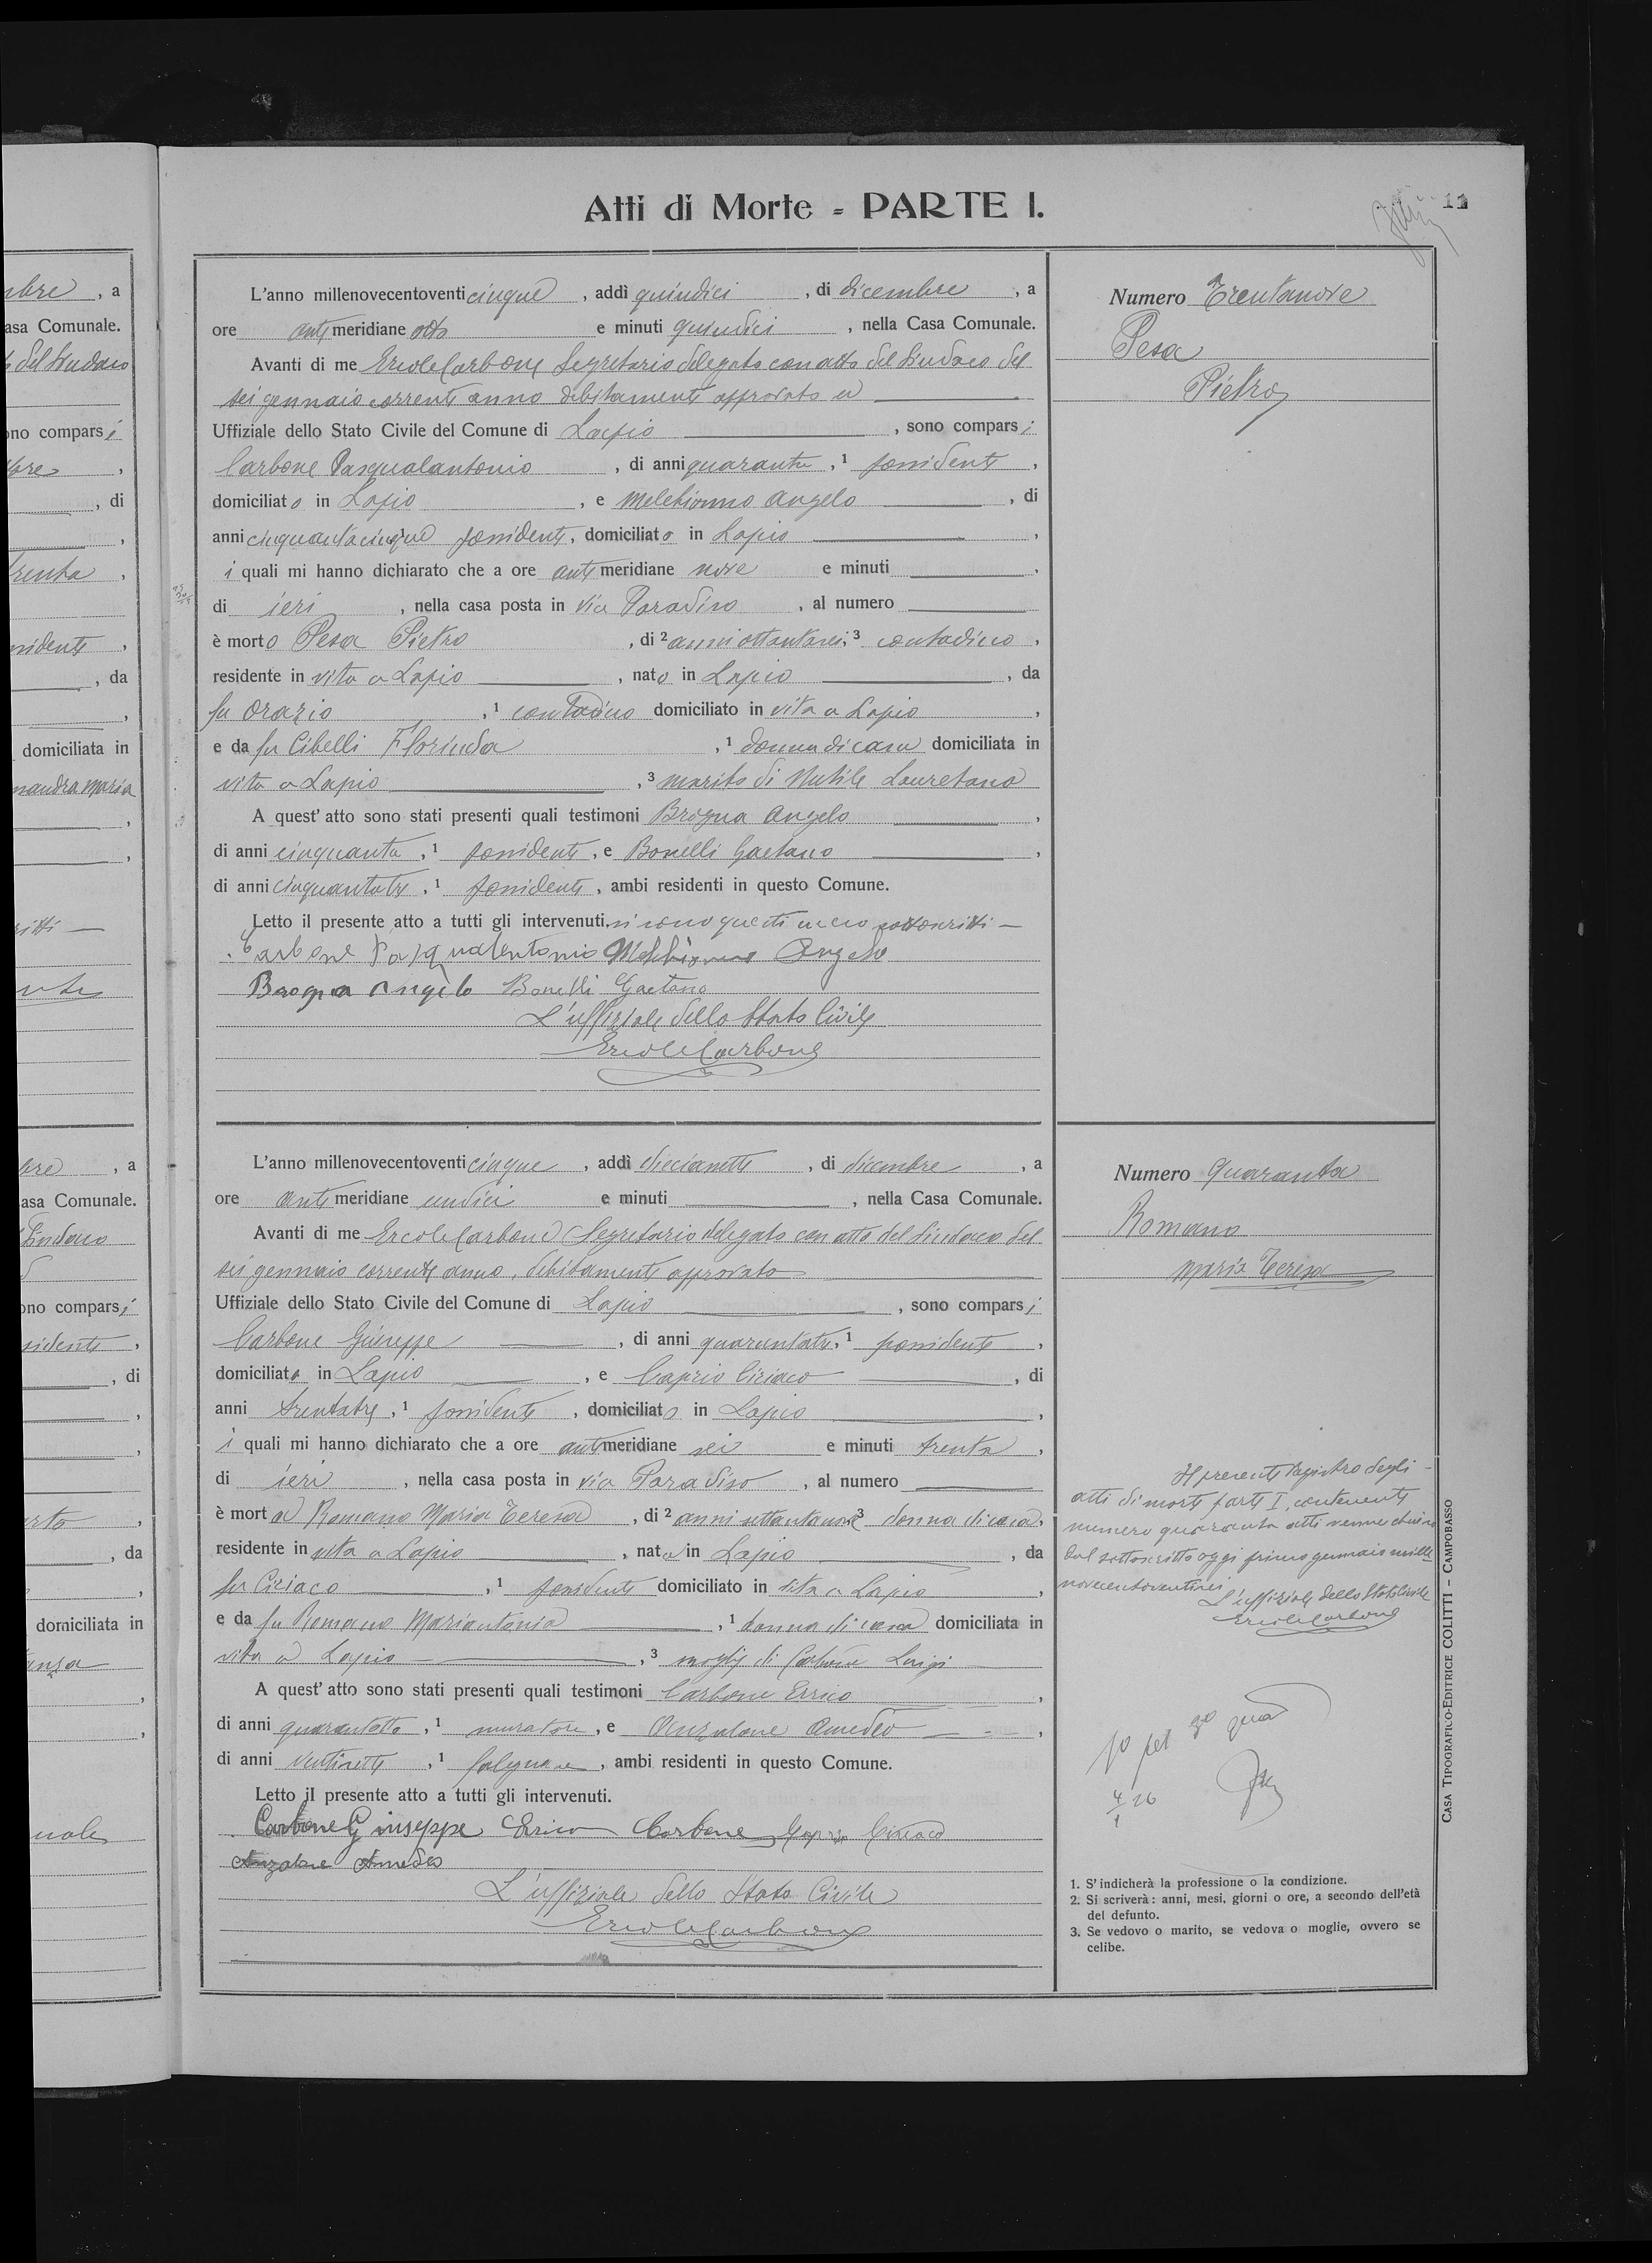 Atti di Morte - PARTE I.
11
L'anno millenovecentoventicinque, addì quindici, di dicembre, a
ore antimeridiane otto e minuti quindici, nella Casa Comunale.
Avanti di me Ercole Carbone Segretario delegato con atto del Sindaco del
sei gennaio corrente anno debitamente approvato
Uffiziale dello Stato Civile del Comune di Lapio, sono comparsi
Carbone Pasqualantonio, di anni quaranta,¹ possidente,
domiciliato in Lapio, e Melchionno Angelo, di
anni cinquantacinque possidente, domiciliato in Lapio,
i quali mi hanno dichiarato che a ore antimeridiane nove e minuti
di ieri, nella casa posta in via Paradiso, al numero
è morto Pesa Pietro, di ² anni ottantasei,³ contadino,
residente in vita a Lapio, nato in Lapio, da
fu Orazio,¹ contadino domiciliato in vita a Lapio,
e da fu Cibelli Florinda,¹ donna di casa domiciliata in
vita a Lapio,³ marito di Nutile Lauretana
A quest'atto sono stati presenti quali testimoni Brogna Angelo,
di anni cinquanta,¹ possidente, e Bonelli Gaetano,
di anni cinquantatre,¹ possidente, ambi residenti in questo Comune.
Letto il presente atto a tutti gli intervenuti, si sono questi meco sottoscritti
Carbone Pasqualantonio Melchionno Angelo
Brogna Angelo Bonelli Gaetano
L'uffiziale dello Stato Civile
Ercole Carbone
Numero Trentanove
Pesa
Pietro
L'anno millenovecentoventicinque, addì diecisette, di dicembre, a
ore antimeridiane undici e minuti, nella Casa Comunale.
Avanti di me Ercole Carbone Segretario delegato con atto del Sindaco del
sei gennaio corrente anno, debitamente approvato
Uffiziale dello Stato Civile del Comune di Lapio, sono comparsi
Carbone Giuseppe, di anni quarantatre,¹ possidente,
domiciliato in Lapio, e Caprio Ciriaco, di
anni trentatre,¹ possidente, domiciliato in Lapio,
i quali mi hanno dichiarato che a ore antimeridiane sei e minuti trenta,
di ieri, nella casa posta in via Paradiso, al numero
è morta Romano Maria Teresa, di ² anni settantanove ³ donna di casa,
residente in vita a Lapio, nata in Lapio, da
fu Ciriaco,¹ possidente domiciliato in vita a Lapio,
e da fu Romano Mariantonia,¹ donna di casa domiciliata in
vita a Lapio,³ moglie di Carbone Luigi
A quest'atto sono stati presenti quali testimoni Carbone Errico,
di anni quarantotto,¹ muratore, e Anzalone Amedeo,
di anni ventisette,¹ falegname, ambi residenti in questo Comune.
Letto il presente atto a tutti gli intervenuti.
Carbone Giuseppe Errico Carbone Caprio Ciriaco
Anzalone Amedeo
L'uffiziale dello Stato Civile
Ercole Carbone
Numero Quaranta
Romano
Maria Teresa
Il presente Registro degli
atti di morte parte I, contenente
numero quaranta atti venne chiuso
dal sottoscritto oggi primo gennaio mille
novecentoventisei
L'uffiziale dello Stato Civile
Ercole Carbone
1. S'indicherà la professione o la condizione.
2. Si scriverà: anni, mesi, giorni o ore, a secondo dell'età
del defunto.
3. Se vedovo o marito, se vedova o moglie, ovvero se
celibe.
CASA TIPOGRAFICO-EDITRICE COLITTI - CAMPOBASSO